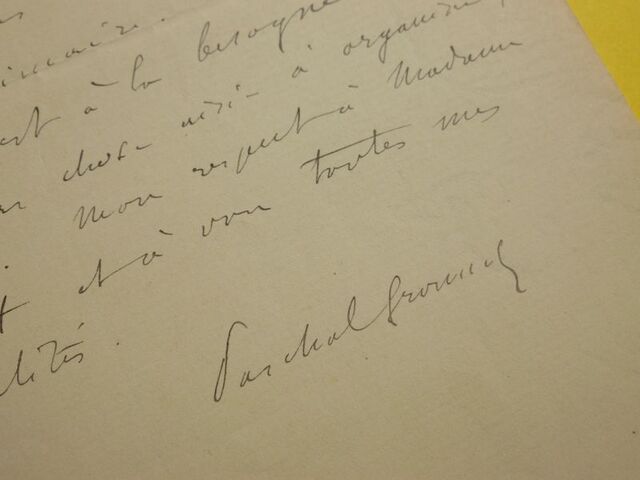 à la besogne
chose aisée à organiser,
Mon respect à Madame
et à vous toutes mes
Paschal Grousset